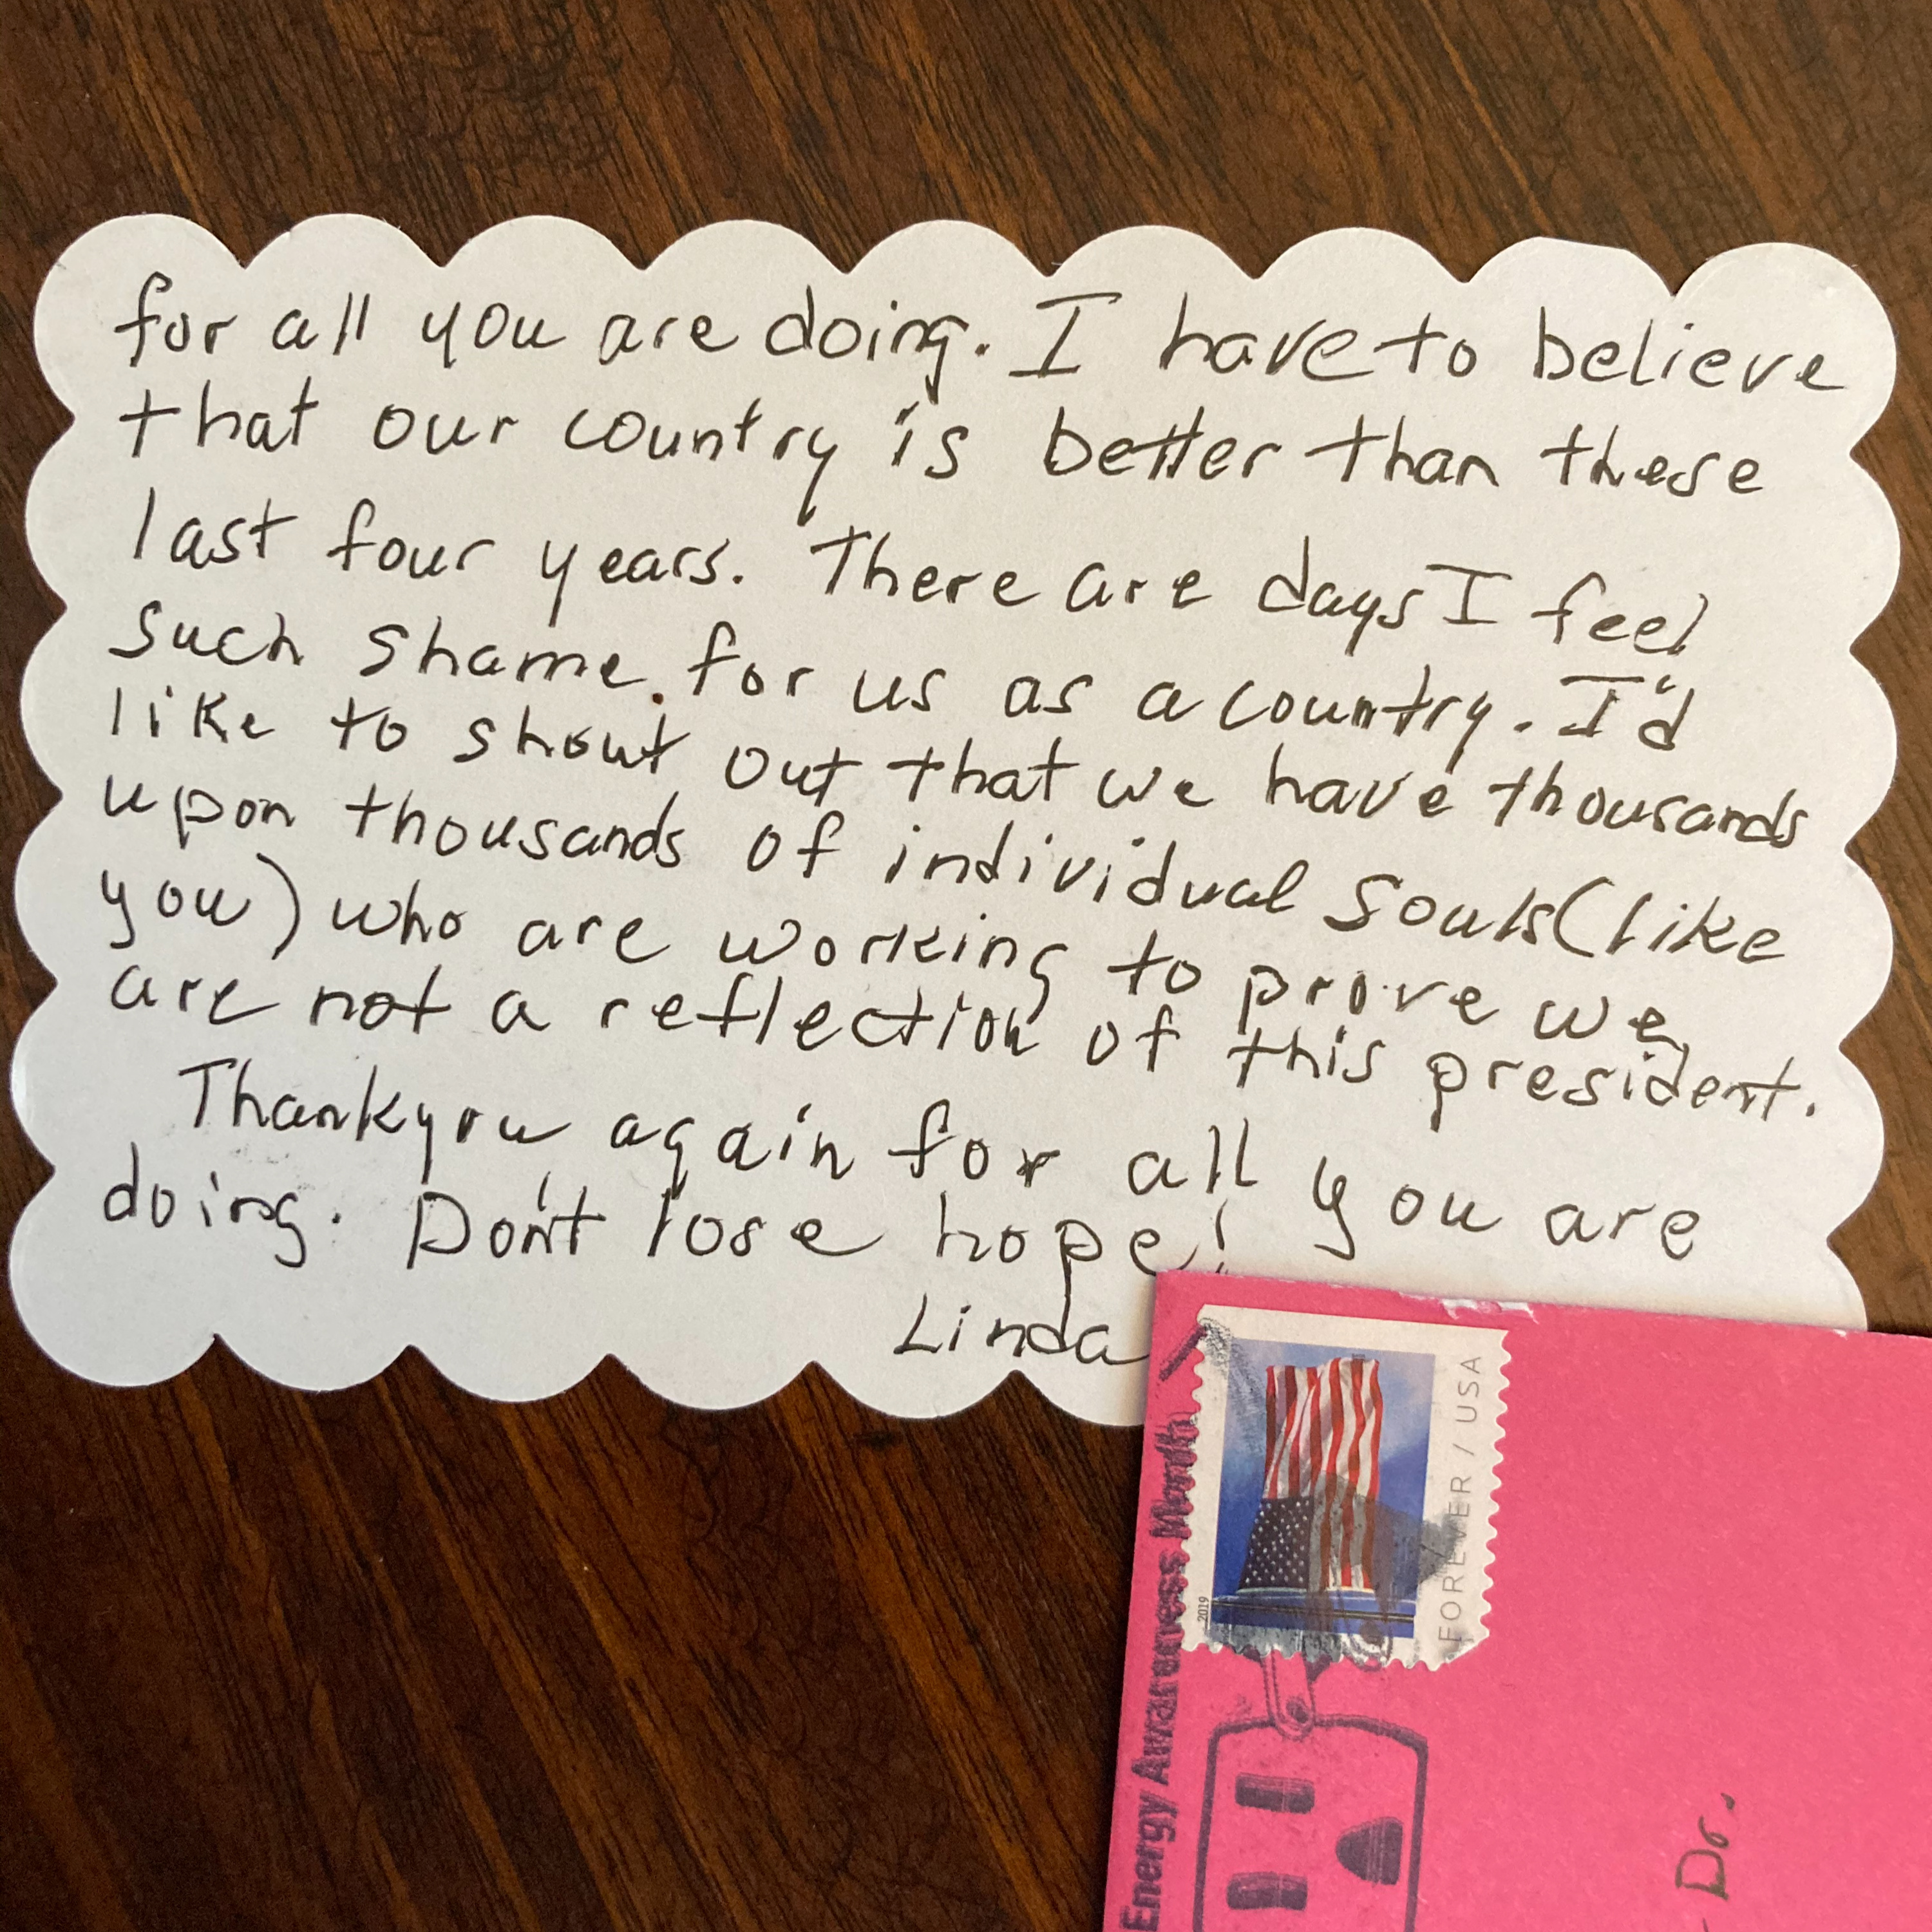 for all you are doing. I have to believe
that our country is better than these
last four years. There are days I feel
such shame for us as a country. I'd
like to shout out that we have thousands
upon thousands of individual souls (like
you) who are working to prove we
are not a reflection of this president.
Thankyou again for all you are
doing. Don't lose hope!
Linda
FOREVER / USA
2019
Energy Awareness Month
Dr.